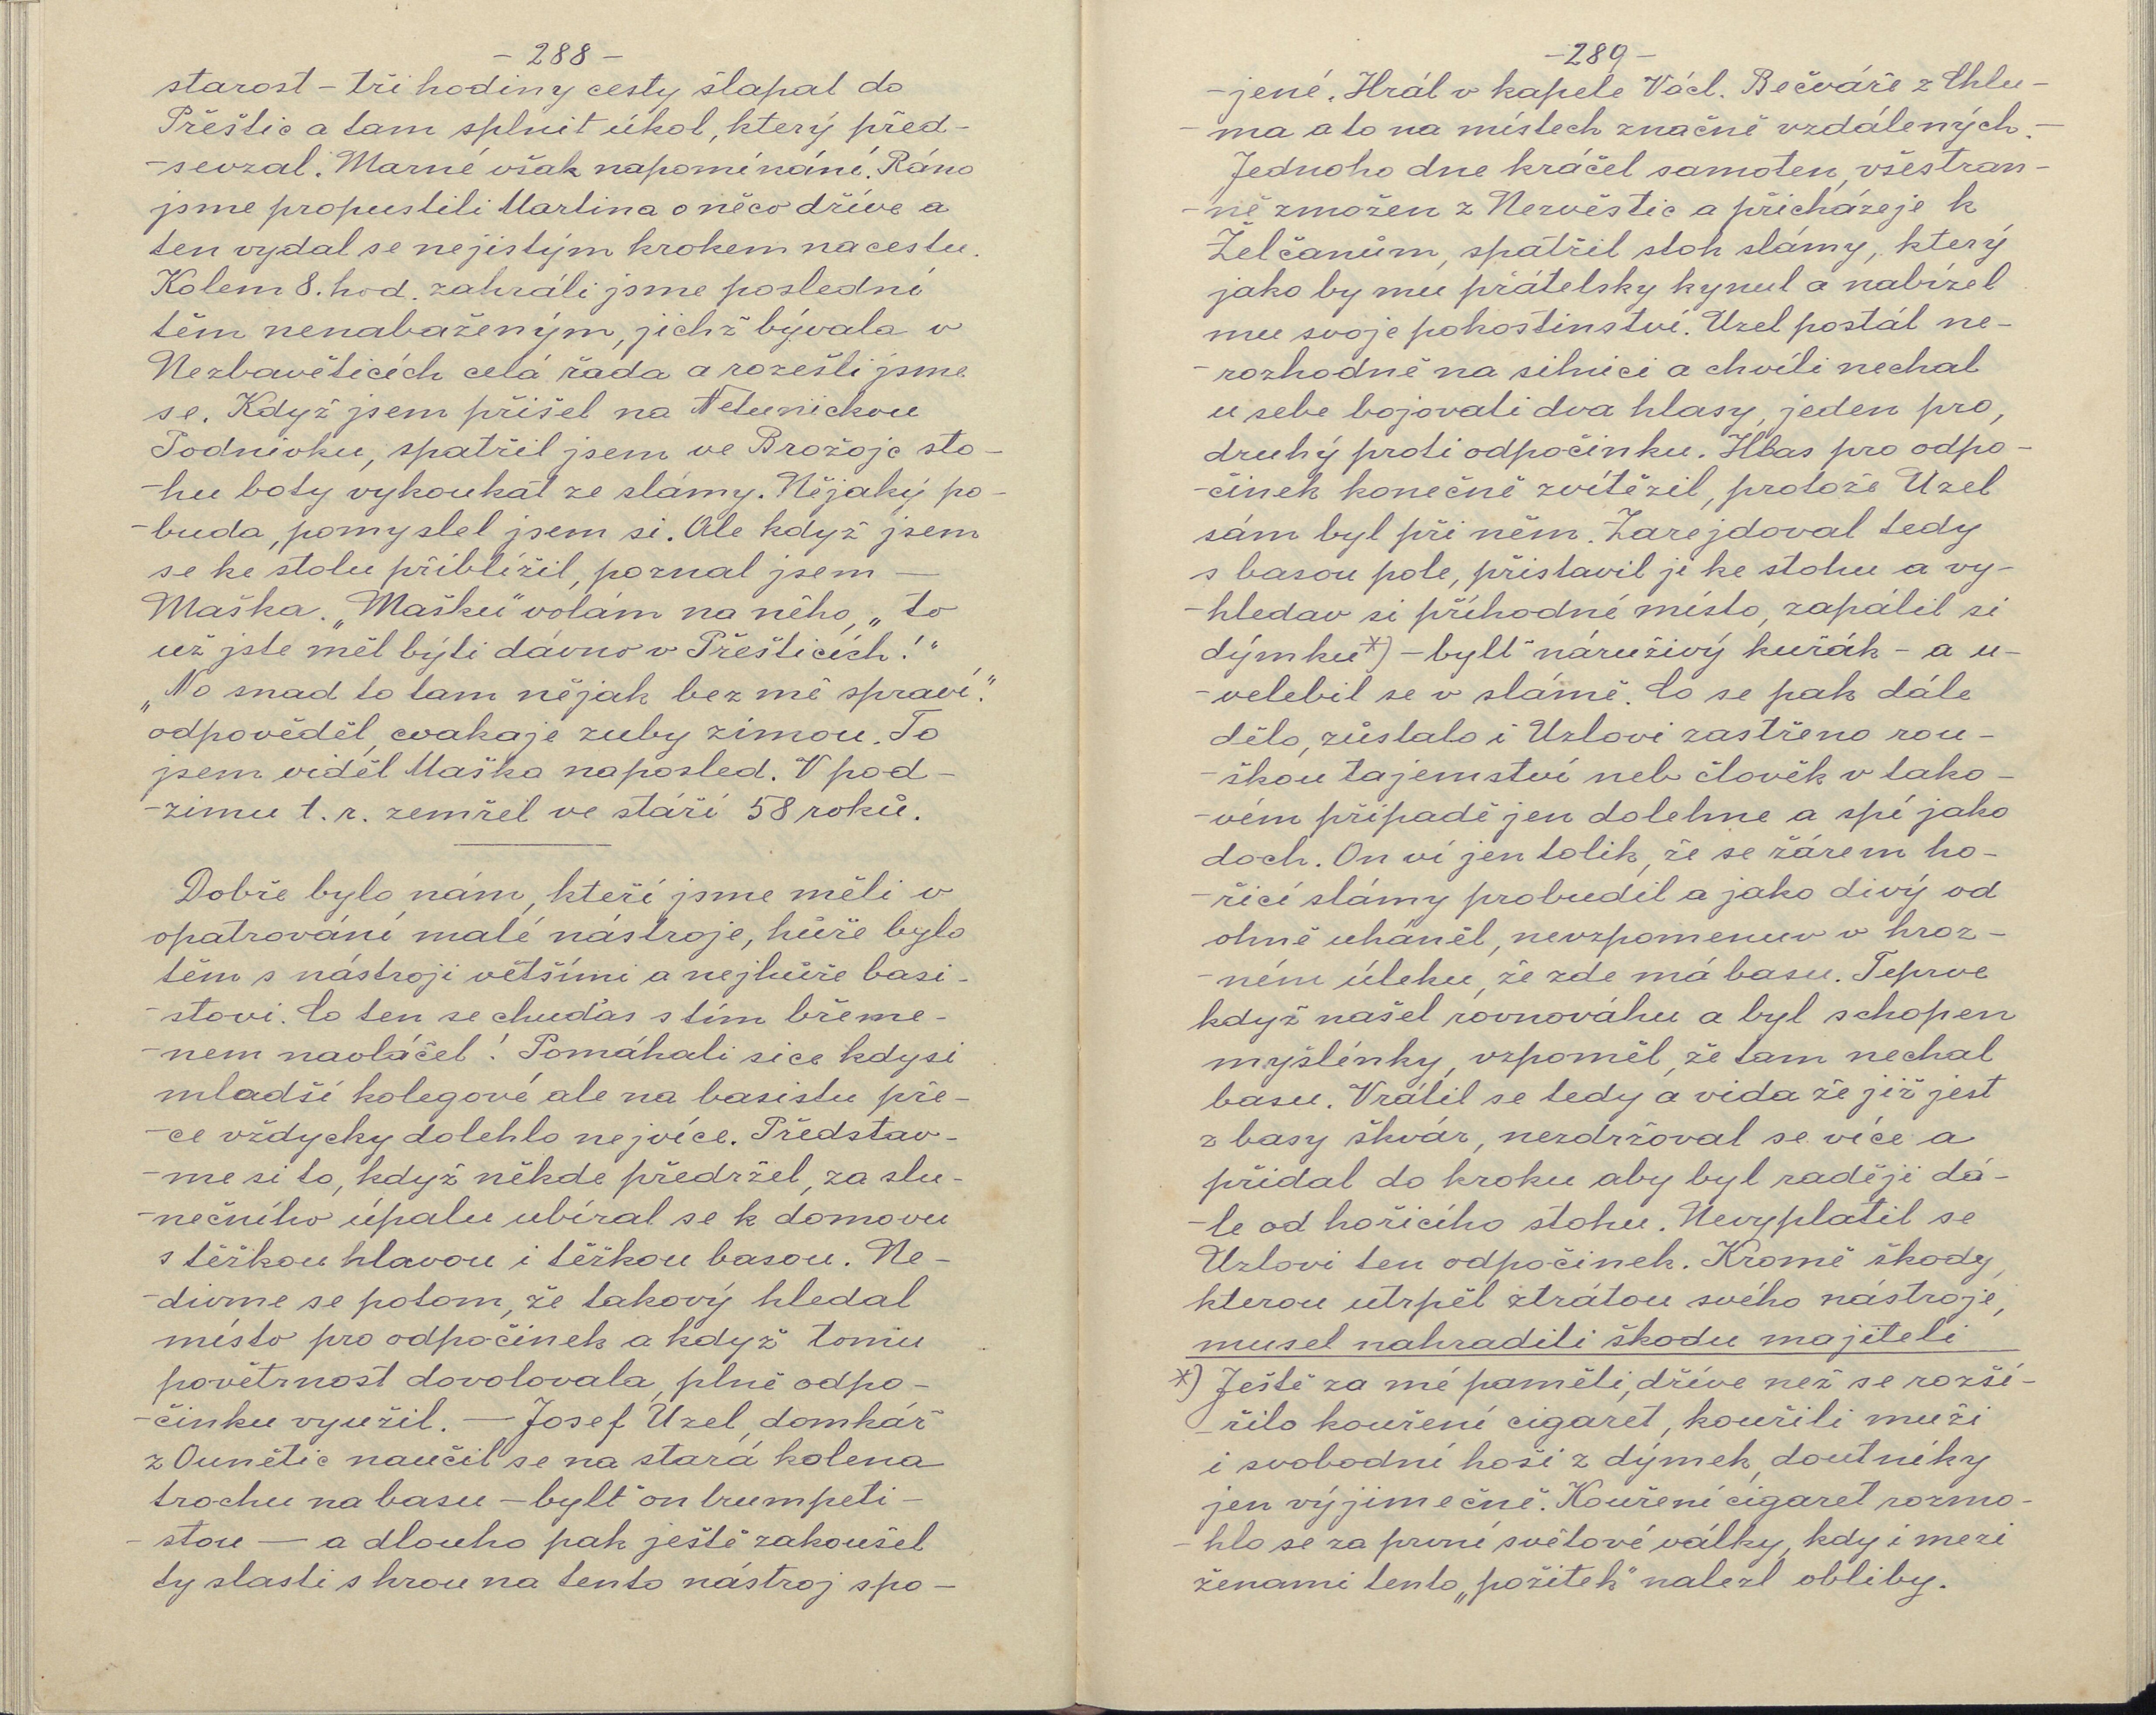 - 288 -
starost - tři hodiny cesty šlapat do
Přeštic a tam splnit úkol, který před-
-sevzal. Marné však napomínání. Ráno
jsme propustili Martina o něco dříve a
ten vydal se nejistým krokem na cestu.
Kolem 8. hod. zahráli jsme poslední
těm nenabaženým, jichž bývala v
Nezbavěticích celá řada a rozešli jsme
se. Když jsem přišel na Netunickou
Podnivku, spatřil jsem ve Brožojc sto-
-hu boty vykoukat ze slámy. Nějaký po-
-buda, pomyslel jsem si. Ale když jsem
se ke stolu přiblížil, poznal jsem —
Maška. „Mašku" volám na něho, „to
už jste měl býti dávno v Přešticích!"
„No snad to tam nějak bez mě spraví."
odpověděl, cvakaje zuby zimou. To
jsem viděl Maška naposled. V pod-
-zimu t. r. zemřel ve stáří 58 roků.
Dobře bylo nám, kteří jsme měli v
opatrování malé nástroje, hůře bylo
těm s nástroji většími a nejhůře basi-
-stovi. Co ten se chuďas s tím břeme-
-nem navláčel! Pomáhali sice kdysi
mladší kolegové ale na basistu pře-
-ce vždycky dolehlo nejvíce. Představ-
-me si to, když někde předržel, za slu-
-nečního úpalu ubíral se k domovu
s těžkou hlavou i těžkou basou. Ne-
-divme se potom, že takový hledal
místo pro odpočinek a když tomu
povětrnost dovolovala, plně odpo-
-činku využil. — Josef Uzel, domkář
z Ounětic naučil se na stará kolena
trochu na basu - bylť on trumpeti-
- stou — a dlouho pak ještě zakoušel
ty slasti s hrou na tento nástroj spo-
- 289 -
-jené. Hrál v kapele Václ. Bečváře z Chlu-
- ma a to na místech značně vzdálených. -
Jednoho dne kráčel samoten, všestran-
-ně zmožen z Nezvěstic a přicházeje k
Želčanům, spatřil stoh slámy, který
jako by mu přátelsky kynul a nabízel
mu svoje pohostinství. Uzel postál ne-
-rozhodně na silnici a chvíli nechal
u sebe bojovati dva hlasy, jeden pro,
druhý proti odpočinku. Hlas pro odpo-
-činek konečně zvítězil, protože Uzel
sám byl při něm. Zarejdoval tedy
s basou pole, přistavil ji ke stohu a vy-
-hledav si příhodné místo, zapálil si
dýmku*) - bylť náruživý kuřák - a u-
-velebil se v slámě. Co se pak dále
dělo, zůstalo i Uzlovi zastřeno rou-
-škou tajemství neb člověk v tako-
-vém případě jen dolehne a spí jako
doch. On ví jen tolik, že se žárem ho-
-řící slámy probudil a jako divý od
ohně uháněl, nevzpomenuv v hroz-
-ném úleku, že zde má basu. Teprve
když našel rovnováhu a byl schopen
myšlénky, vzpoměl, že tam nechal
basu. Vrátil se tedy a vida že již jest
z basy škvár, nezdržoval se více a
přidal do kroku aby byl raději dá-
-le od hořícího stohu. Nevyplatil se
Uzlovi ten odpočinek. Kromě škody,
kterou utrpěl ztrátou svého nástroje,
musel nahraditi škodu majiteli
*) Ještě za mé paměti, dříve než se rozší-
-řilo kouření cigaret, kouřili muži
i svobodní hoši z dýmek, doutníky
jen výjimečně. Kouření cigaret rozmo-
-hlo se za první světové války, kdy i mezi
ženami tento „požitek" nalezl obliby.